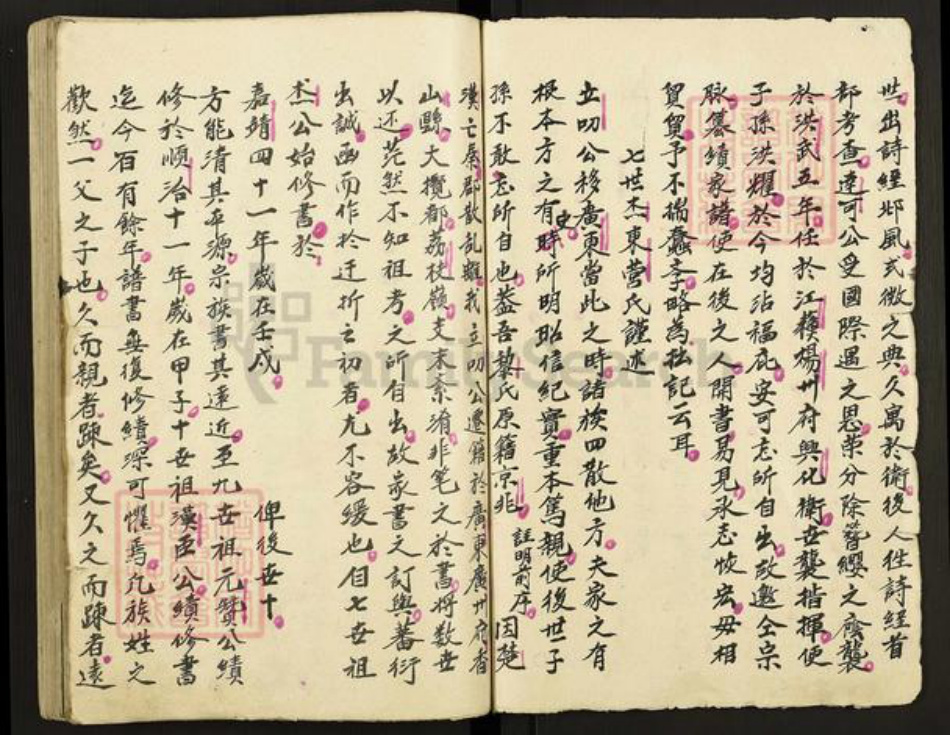 世出詩經邶風式微之典久寓於衛後人性詩經首
部考查連可公受國際遇之恩榮分除簪纓之蔭襲
於洪武五年任於江蘓楊州府興化衛世襲指揮使
子孫洪耀於今均沾福庇安可忘所自出故邀仝宗
脉纂續家譜使在後之一開書易見永志恢宏毋相
貿貿予不揣蠡李略為拙記云耳
七世杰東營氏謹述
立叨公移廣東當此之時諸族四散他方夫家之有
根本方之有史時所明昭信紀實重本篤親使後世子
孫不敢忘所自也葢吾黎氏原籍京兆註明前序因楚
漢亡秦郡散乱離我立叨公遷籍於廣東廣州府香
山縣大欖都荔枝嶺支末紊淆非笔之於書将数世
以还茫然不知祖考之所自出故家書之訂與蕃衍
出誠函而作於迁折之初者尤不容緩也自七世祖
杰公始修書於
嘉靖四十一年歲在壬戌 俾後世十
方能清其卒源宗族書其遠近至九世祖元贊公續
修於順治十一年歲在甲子十世祖漢臣公續修書
迄今百有餘年譜書無復修續深可懼焉凢族姓之
歡然一父之子也久而親者踈矣又久之而踈者遠